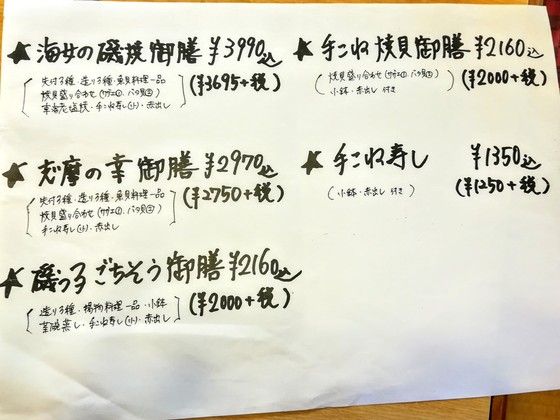 ★海女の磯焼御膳 ¥3990込
(¥3695+税)
先付3種・造り3種・魚貝料理一品
焼貝盛り合わせ(サザエ①、バタ貝②)
手こね寿し(小)・赤出し
★志摩の幸御膳 ¥2970込
(¥2750+税)
先付3種・造り3種・魚貝料理一品
焼貝盛り合わせ(サザエ①、バタ貝②)
手こね寿し(小)・赤出し
★磯っ子ごちそう御膳 ¥2160込
(¥2000+税)
造り3種・揚物料理一品・小鉢
茶碗蒸し・手こね寿し(小)・赤出し
★手こね焼貝御膳 ¥2160込
(¥2000+税)
焼貝盛り合わせ(サザエ①、バタ貝②)
小鉢・赤出し付き
★手こね寿し ¥1350込
(¥1250+税)
(小鉢・赤出し付き)